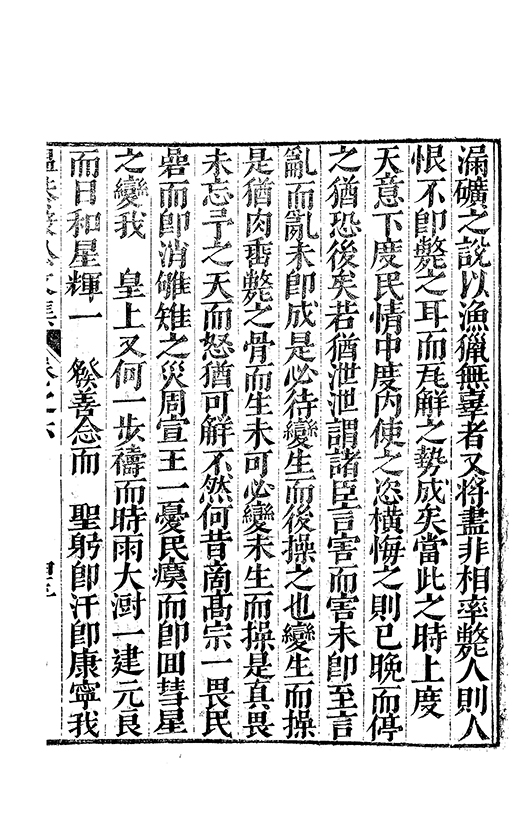 漏礦之說以漁獵無辜者又將盡非相率斃人則人
恨不卽斃之耳而瓦解之勢成矣當此之時上度
天意下度民情中度內使之恣橫悔之則已晚而停
之猶恐後矣若猶泄泄謂諸臣言害而害未卽至言
亂而亂未卽成是必待變生而後操之也變生而操
是猶肉斃之骨而生未可必變未生而操是真畏
未忘予之天而怒猶可解不然何昔商高宗一畏民
碞而卽消雊雉之災周宣王一憂民瘼而卽囬彗星
之變我 皇上又何一步禱而時雨大澍一建元良
而日和星輝一 發善念而 聖躬卽汗卽康寧我